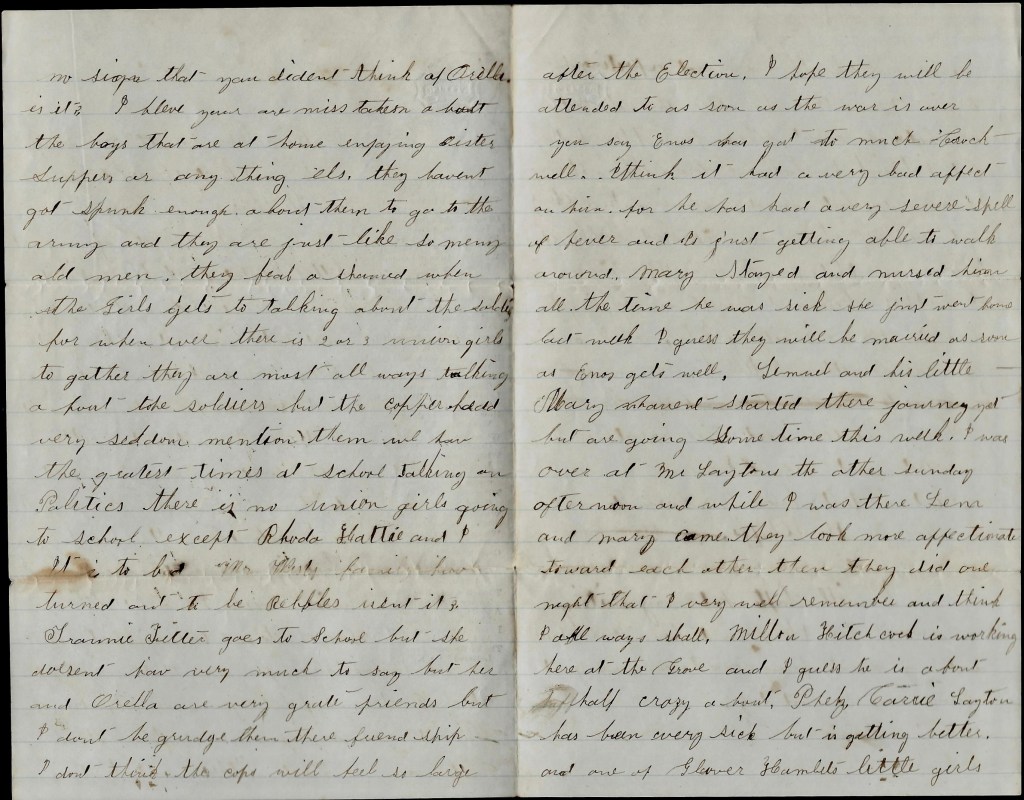 no sign that you dident think of Orilla
is it? I bleve your are miss taken a bout
the boys that are at home enjoying oister
Suppers or any thing els. they havent
got spunk enough about them to go to the
army and they are just like so meny
old men. they feal a shamed when
the Girls gets to talking about the
for when ever there is 2 or 3 union girls
to gather they are most all ways talking
a bout the soldiers but the copper head
very seldom mention them we hav
the greatest times at school talking on
Politics there is no union girls going
to school except Rhoda Hattie and I
It is to bad
turned out to be Rebbles isent it?
goes to school but she
doesent hav very much to say but her
and Orella are very grate friends but
I dont be grudge them there friend ship
I dont think the cops will feel so large
after the Election. I hope they will be
attended to as soon as the war is over
you say Enos has got to much
well. I think it had a very bad affect
on him. for he has had a very severe spell
of fever and is just getting able to walk
around. Mary Stayed and nursed him
all the time he was sick she just went home
last week I guess they will be maired as soon
as Enos gets well. Lemuel and his little
Mary havent started there journey yet
but are going Some time this week. I was
over at Mr Laytons the other sunday
afternoon and while I was there Lem
and mary came they look more affectionate
toward each other then they did one
night that I very well remember and think
I all ways shall. Milton Hitchcock is working
here at the Grove and I guess he is about
half crazy a bout. Carrie Layton
has been every sick but is getting better.
and one of Glover little girls